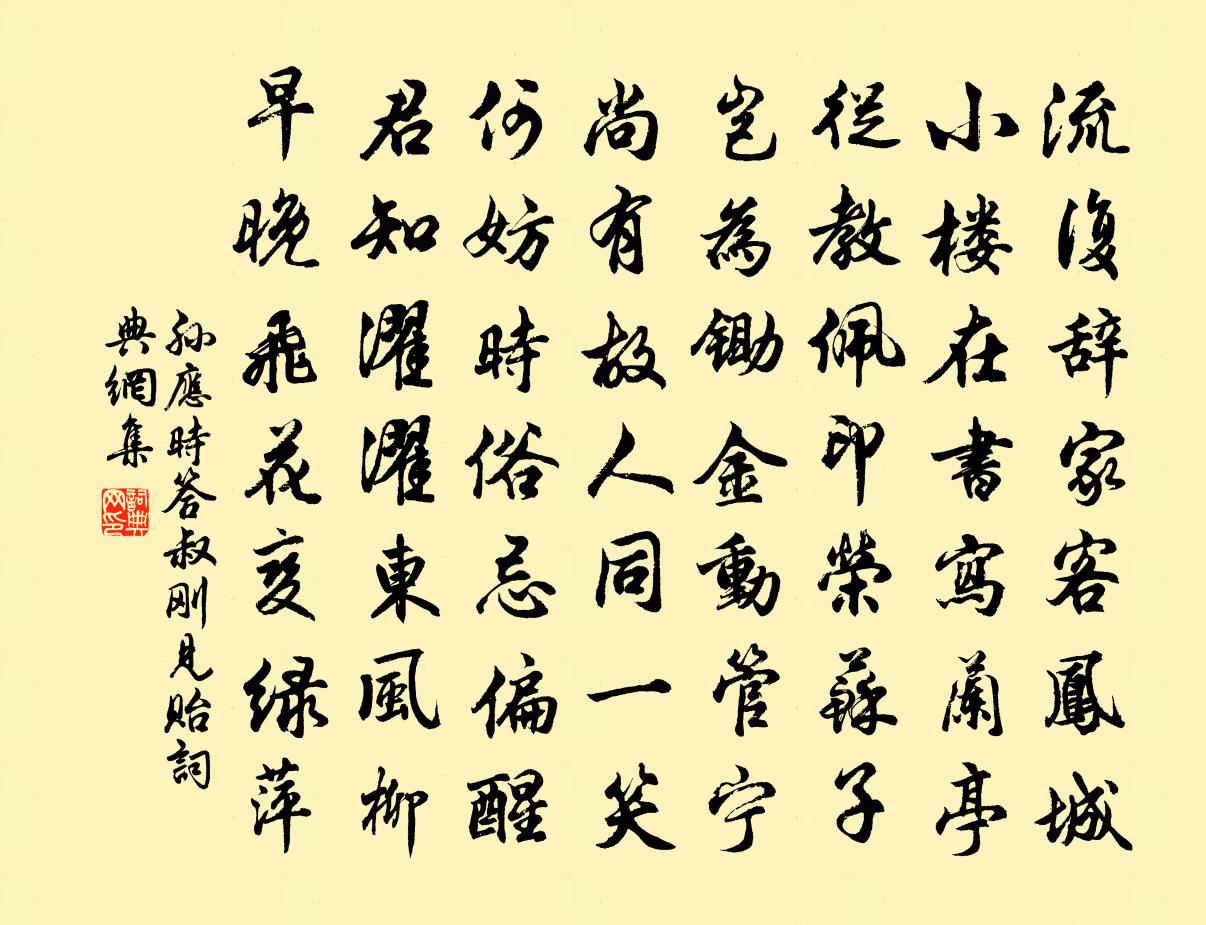 流復辞家客鳳城
小楼在書寫蘭亭
從教佩印榮蘇子
豈為鋤金動管宁
尚有故人同一笑
何妨時俗忌偏醒
君知濯濯東風柳
早晚飛花变绿萍
孙應時答叔刚見貽詞
典網集
詞典网印